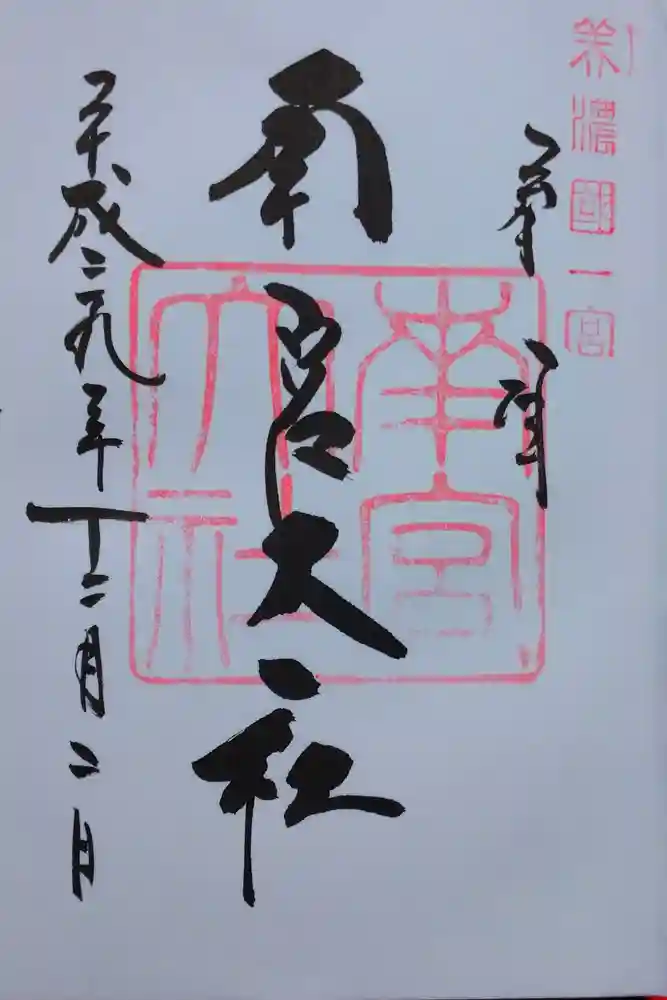 美濃國一宮
奉拝
南宮大社
南宮
大社
平成二九年十二月二日